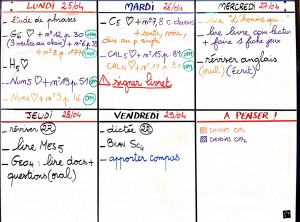 LUNDI 25/04
Etude de phrases
G6 ♡ + n°12 p.30 cm1
(3 mettre au choix) + n°6 p.33
H5 ♡
Num5 ♡ + n°19 p.51 cm1
Num5 ♡ + n°9 p.46 cm2
MARDI 26/04
C5 ♡ + n°7,8 c devoirs
+ sentir, voir,
dire au p simple
CAL5 ♡ + n°15 p.81 cm1
CAL4 ♡ + n°17 p.81 cm2
⚠ signer livret
MERCREDI 27/04
- lire "d'hommes qui..."
- lire livre coin lecture
+ faire 1 fiche jeux
- réviser anglais
(oral) (écrit)
JEUDI 28/04
- réviser 22
- lire Mes5
- Geo4 : lire docs +
questions (oral)
VENDREDI 29/04
- dictée 22
- Bilan Sc4
- apporter compas
A PENSER !
DEVOIRS CM1
DEVOIRS CM2